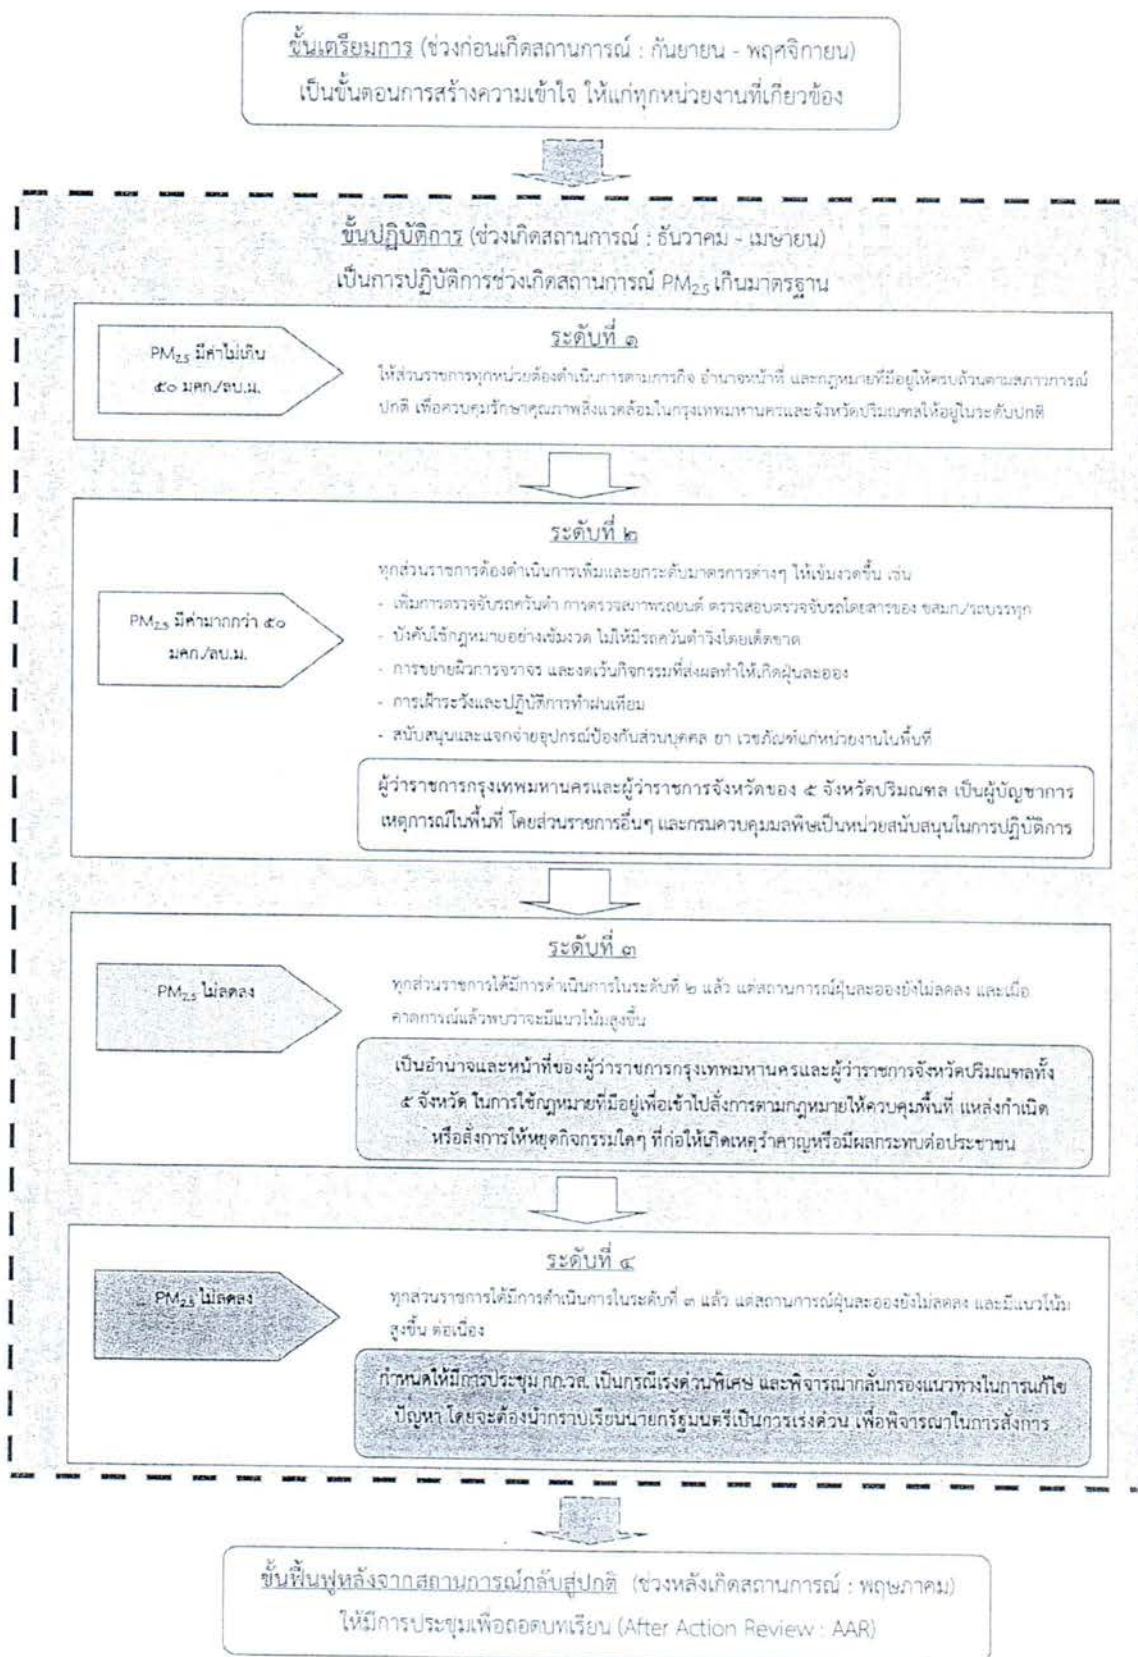 ขั้นเตรียมการ (ช่วงก่อนเกิดสถานการณ์ : กันยายน - พฤศจิกายน)
เป็นขั้นตอนการสร้างความเข้าใจ ให้แก่ทุกหน่วยงานที่เกี่ยวข้อง
ขั้นปฏิบัติการ (ช่วงเกิดสถานการณ์ : ธันวาคม - เมษายน)
เป็นการปฏิบัติการช่วงเกิดสถานการณ์ PM2.5 เกินมาตรฐาน
ระดับที่ ๑
PM2.5 มีค่าไม่เกิน
๕๐ มคก./ลบ.ม.
ให้ส่วนราชการทุกหน่วยต้องดำเนินการตามภารกิจ อำนาจหน้าที่ และกฎหมายที่มีอยู่ให้ครบถ้วนตามสภาวการณ์
ปกติ เพื่อควบคุมรักษาคุณภาพสิ่งแวดล้อมในกรุงเทพมหานครและจังหวัดปริมณฑลให้อยู่ในระดับปกติ
ระดับที่ ๒
PM2.5 มีค่ามากกว่า ๕๐
มคก./ลบ.ม.
ทุกส่วนราชการต้องดำเนินการเพิ่มและยกระดับมาตรการต่างๆ ให้เข้มงวดขึ้น เช่น
- เพิ่มการตรวจจับรถควันดำ การตรวจสภาพรถยนต์ ตรวจสอบตรวจจับรถโดยสารของ ขสมก./รถบรรทุก
- บังคับใช้กฎหมายอย่างเข้มงวด ไม่ให้มีรถควันดำวิ่งโดยเด็ดขาด
- การขยายผิวการจราจร และงดเว้นกิจกรรมที่ส่งผลทำให้เกิดฝุ่นละออง
- การเฝ้าระวังและปฏิบัติการทำฝนเทียม
- สนับสนุนและแจกจ่ายอุปกรณ์ป้องกันส่วนบุคคล ยา เวชภัณฑ์แก่หน่วยงานในพื้นที่
ผู้ว่าราชการกรุงเทพมหานครและผู้ว่าราชการจังหวัดของ ๕ จังหวัดปริมณฑล เป็นผู้บัญชาการ
เหตุการณ์ในพื้นที่ โดยส่วนราชการอื่นๆ และกรมควบคุมมลพิษเป็นหน่วยสนับสนุนในการปฏิบัติการ
ระดับที่ ๓
PM2.5 ไม่ลดลง
ทุกส่วนราชการได้มีการดำเนินการในระดับที่ ๒ แล้ว แต่สถานการณ์ฝุ่นละอองยังไม่ลดลง และเมื่อ
คาดการณ์แล้วพบว่าจะมีแนวโน้มสูงขึ้น
เป็นอำนาจและหน้าที่ของผู้ว่าราชการกรุงเทพมหานครและผู้ว่าราชการจังหวัดปริมณฑลทั้ง
๕ จังหวัด ในการใช้กฎหมายที่มีอยู่เพื่อเข้าไปสั่งการตามกฎหมายให้ควบคุมพื้นที่ แหล่งกำเนิด
หรือสั่งการให้หยุดกิจกรรมใดๆ ที่ก่อให้เกิดเหตุรำคาญหรือมีผลกระทบต่อประชาชน
ระดับที่ ๔
PM2.5 ไม่ลดลง
ทุกส่วนราชการได้มีการดำเนินการในระดับที่ ๓ แล้ว แต่สถานการณ์ฝุ่นละอองยังไม่ลดลง และมีแนวโน้ม
สูงขึ้น ต่อเนื่อง
กำหนดให้มีการประชุม กก.วล. เป็นกรณีเร่งด่วนพิเศษ และพิจารณากลั่นกรองแนวทางในการแก้ไข
ปัญหา โดยจะต้องนำกราบเรียนนายกรัฐมนตรีเป็นการเร่งด่วน เพื่อพิจารณาในการสั่งการ
ขั้นฟื้นฟูหลังจากสถานการณ์กลับสู่ปกติ (ช่วงหลังเกิดสถานการณ์ : พฤษภาคม)
ให้มีการประชุมเพื่อถอดบทเรียน (After Action Review : AAR)